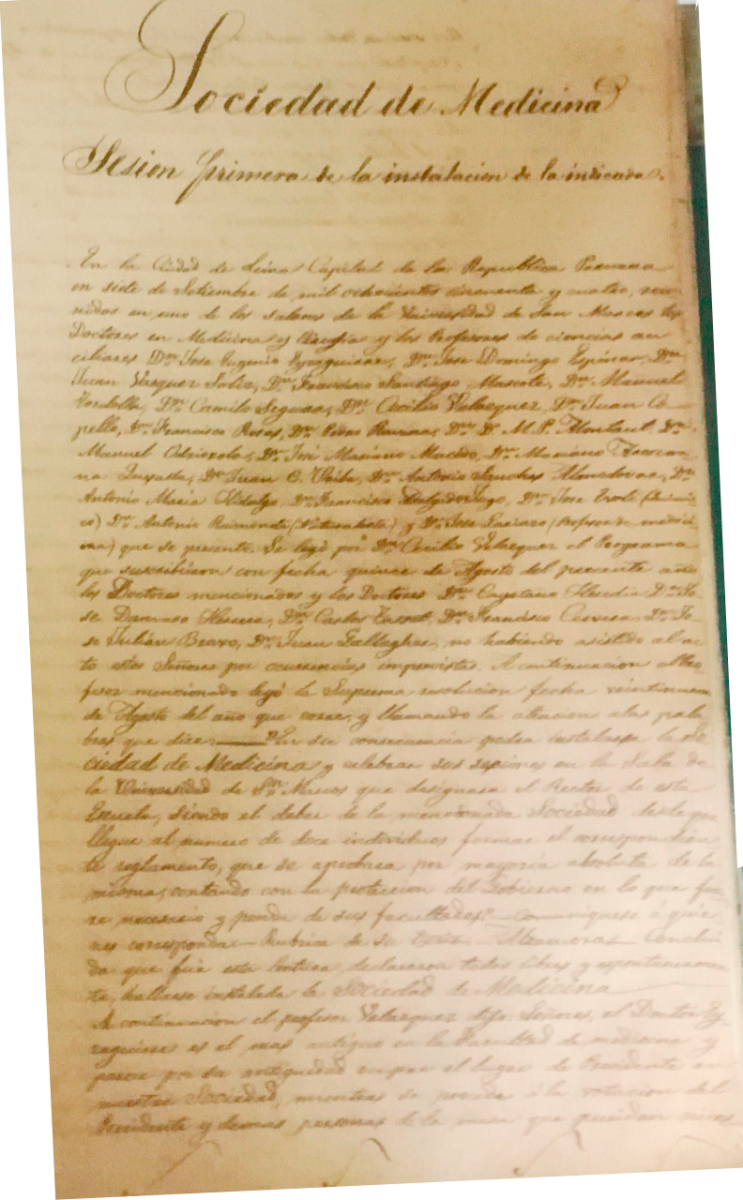 Sociedad de Medicina
Sesion primera de la instalacion de la indicada.
En la Ciudad de Lima Capital de la Republica Peruana
en siete de Setiembre de mil ochocientos cincuenta y cuatro, reu-
nidos en uno de los Salones de la Universidad de San Marcos los
Doctores en Medicina y Cirugia y los Profesores de ciencias au
ciliares Dn. Jose Eugenio Eyzaguirre, Dn. Jose Domingo Espinar, Dn.
Juan Vasquez Solis, Dn. Francisco Santiago Mascote, Dn. Manuel
Dn. Camilo Segura, Dn. Cecilio Velasquez, Dn. Juan Co-
pello, Dn. Francisco Rosas, Dn. Dn. Dr. M. P. Montaut, Dn.
Manuel Odriozola, Dn. José Mariano Macedo, Dn. Mariano Aroseme
na Quesada, Dn. Juan C. Uribe, Dn. Antonio Sanches Almodovar, Dn.
Antonio Maria Hidalgo, Dn. Francisco Dn. Jose Eboli (Quimi
co) Dn. Antonio Raimondi (Naturalista) y Dn. Jose (Profesor de medici
na) que se presentó. Se leyó por Dn. Cecilio Velasquez el Programa
que suscribieron con fecha quince de Agosto del presente año
los Doctores mencionados y los Doctores Dn. Cayetano Heredia Dn. Jo-
se Damaso Herrera, Dn. Carlos Dn. Francisco Dn. Jo-
se Julián Bravo, Dn. Juan Gallagher, no habiendo asistido al ac-
to estos Señores por ocurrencias imprevistas. A continuacion el Pro
fesor mencionado leyó la Suprema resolucion fecha veintinueve
de Agosto del año que corre, y llamando la atencion a las pala
bras que dice "En su consecuencia podra instalarse la So
ciedad de Medicina y celebrar sus sesiones en la Sala de
la Universidad de Sn. Marcos que designara el Rector de esta
Escuela, siendo el deber de la mencionada Sociedad desde que
llegue al numero de doce individuos formar el correspondien
te reglamento, que se aprobara por mayoria absoluta de la
misma, contando con la proteccion del Gobierno en lo que fue
re necesario y penda de sus facultades." — comuniquese á quie
nes corresponda — Rubrica de Su — Concluí
da que fue esta lectura, declararon todos libre y espontaneamen
te, hallarse instalada la Sociedad de Medicina
A continuacion el profesor Velasquez dijo: Señores, el Doctor Ey-
zaguirre es el mas antiguo en la Facultad de medicina y
parece por su antigüedad ocupar el lugar de Presidente en
nuestra Sociedad, mientras se proceda á la votacion del
Presidente y demas personas de la mesa que